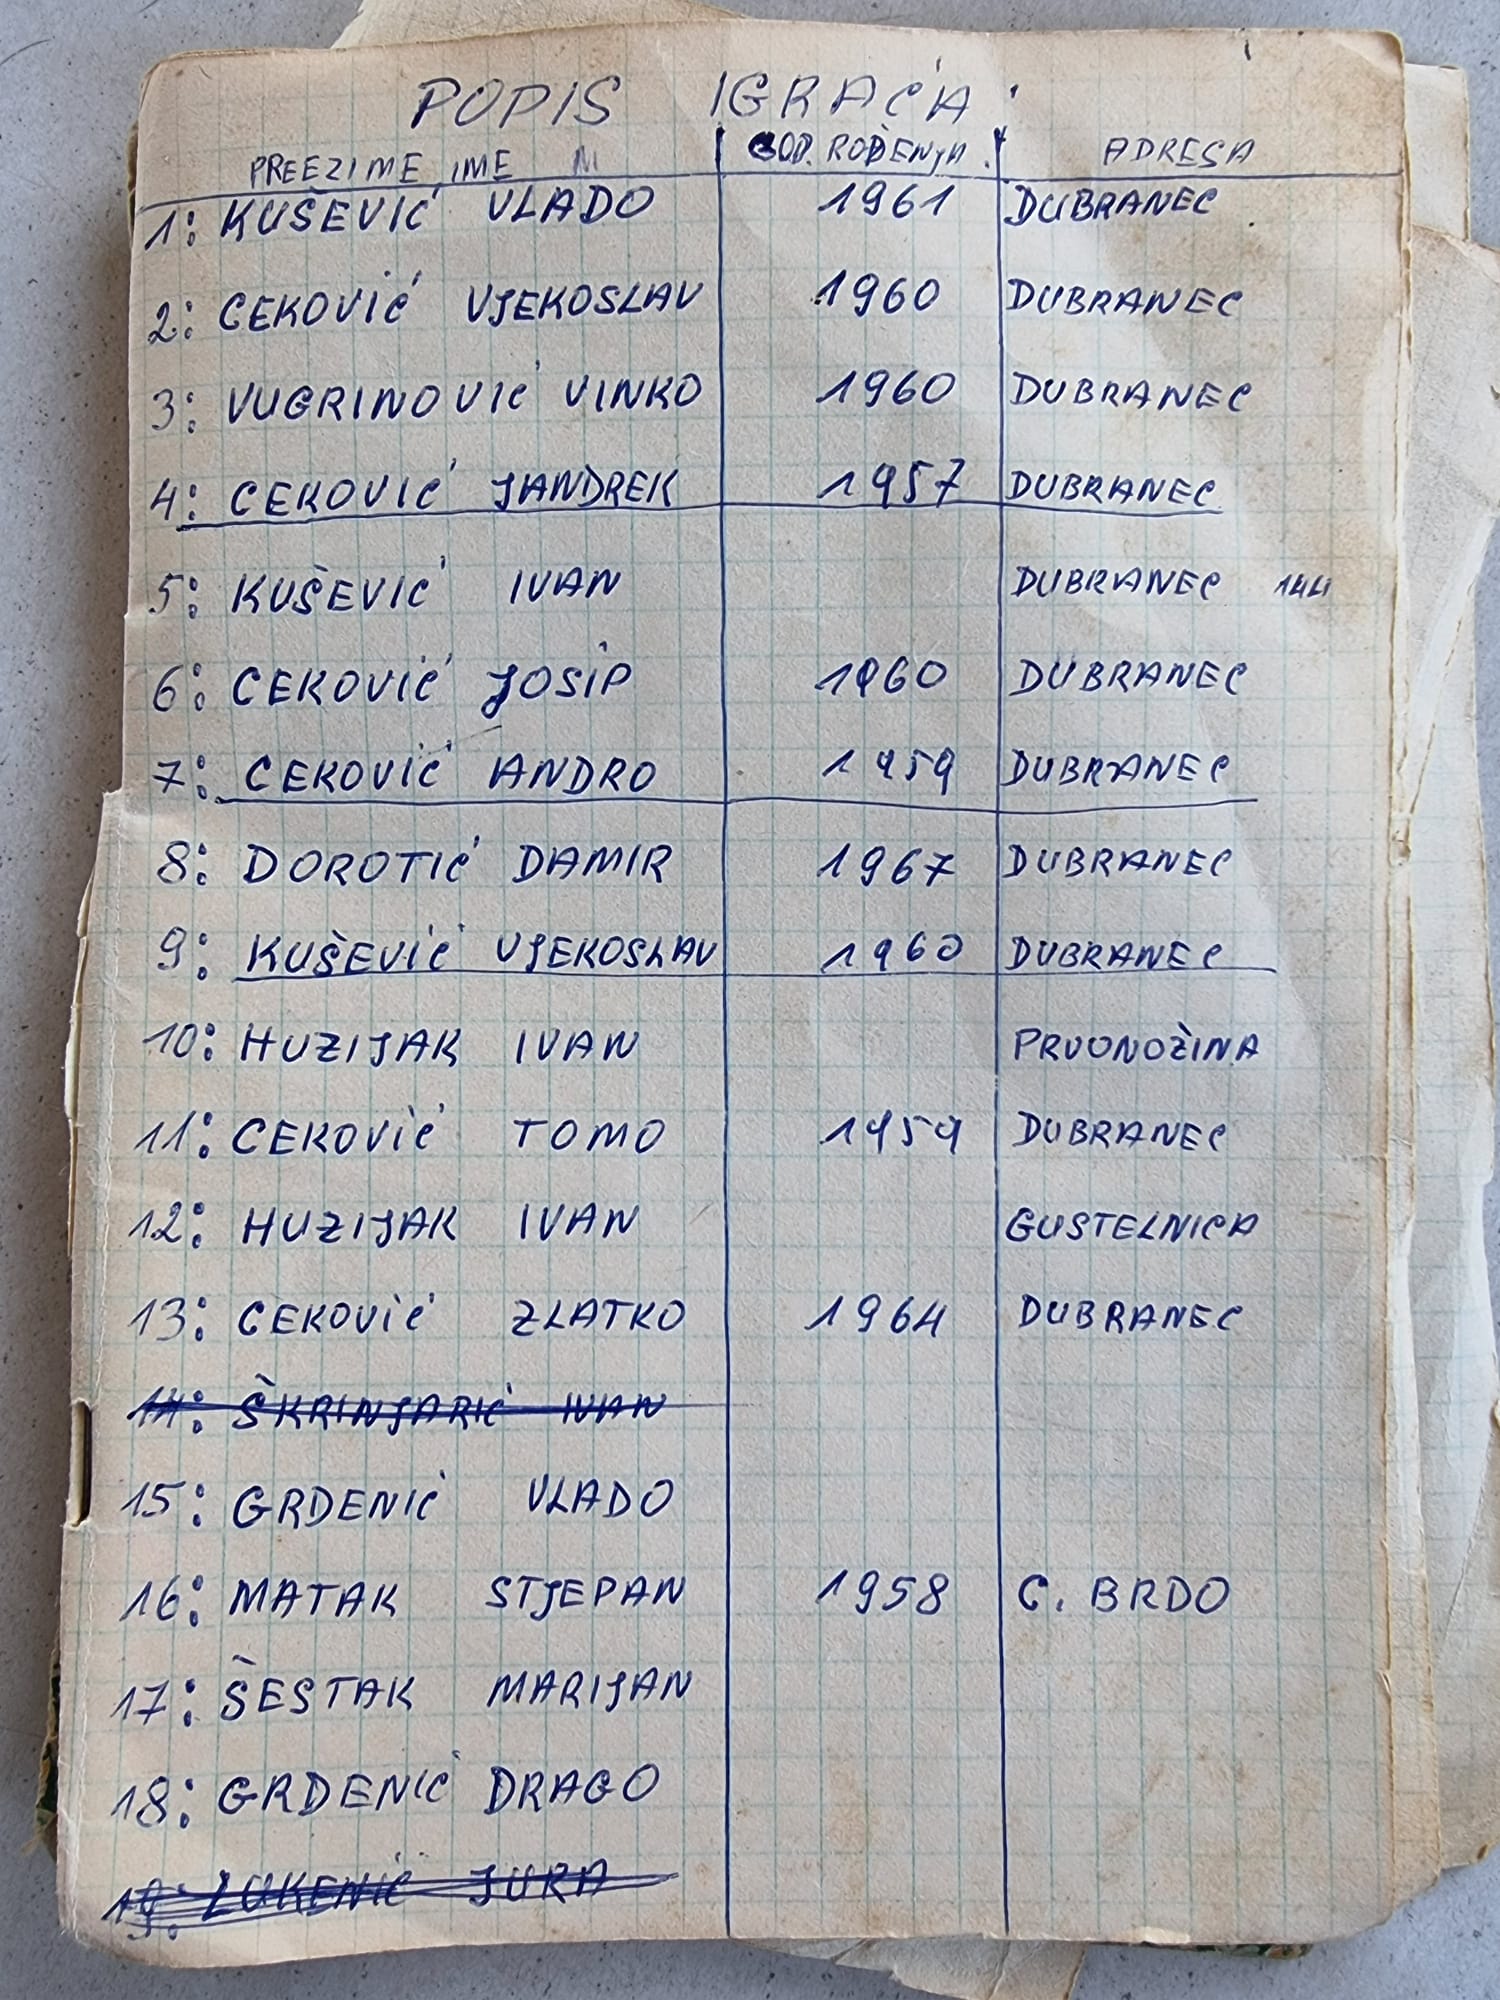 POPIS IGRAĆA
PREEZIME IME GOD. ROĐENJA. ADRESA
1: KUŠEVIĆ VLADO 1961 DUBRANEC
2: CEKOVIĆ VJEKOSLAV 1960 DUBRANEC
3: VUGRINOVIĆ VINKO 1960 DUBRANEC
4: CEKOVIĆ JANDREK 1957 DUBRANEC
5: KUŠEVIĆ IVAN DUBRANEC 144
6: CEKOVIĆ JOSIP 1960 DUBRANEC
7: CEKOVIĆ ANDRO 1959 DUBRANEC
8: DOROTIĆ DAMIR 1967 DUBRANEC
9: KUŠEVIĆ VJEKOSLAV 1960 DUBRANEC
10: HUZIJAK IVAN PRVONOŽINA
11: CEKOVIĆ TOMO 1959 DUBRANEC
12: HUZIJAK IVAN GUSTELNICA
13: CEKOVIĆ ZLATKO 1964 DUBRANEC
14: ŠKRINJARIĆ IVAN
15: GRDENIĆ VLADO
16: MATAK STJEPAN 1958 C. BRDO
17: ŠESTAK MARIJAN
18: GRDENIĆ DRAGO
19: LUKENIĆ JURA